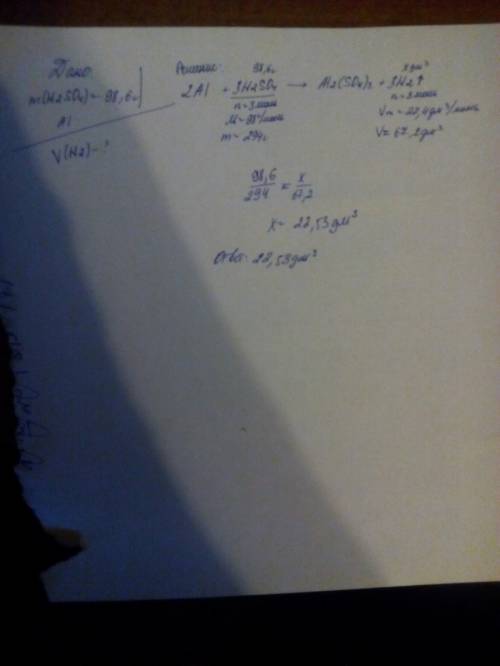 Дано:
m(H2SO4) = 98,6г
Al
V(H2) - ?
Решение:
98,6г x дм³
2Al + 3H2SO4 → Al2(SO4)3 + 3H2↑
n = 3моль n = 3моль
M = 98г/моль Vm = 22,4дм³/моль
m = 294г V = 67,2дм³
98,6 / 294 = x / 67,2
x = 22,53дм³
Ответ: 22,53дм³